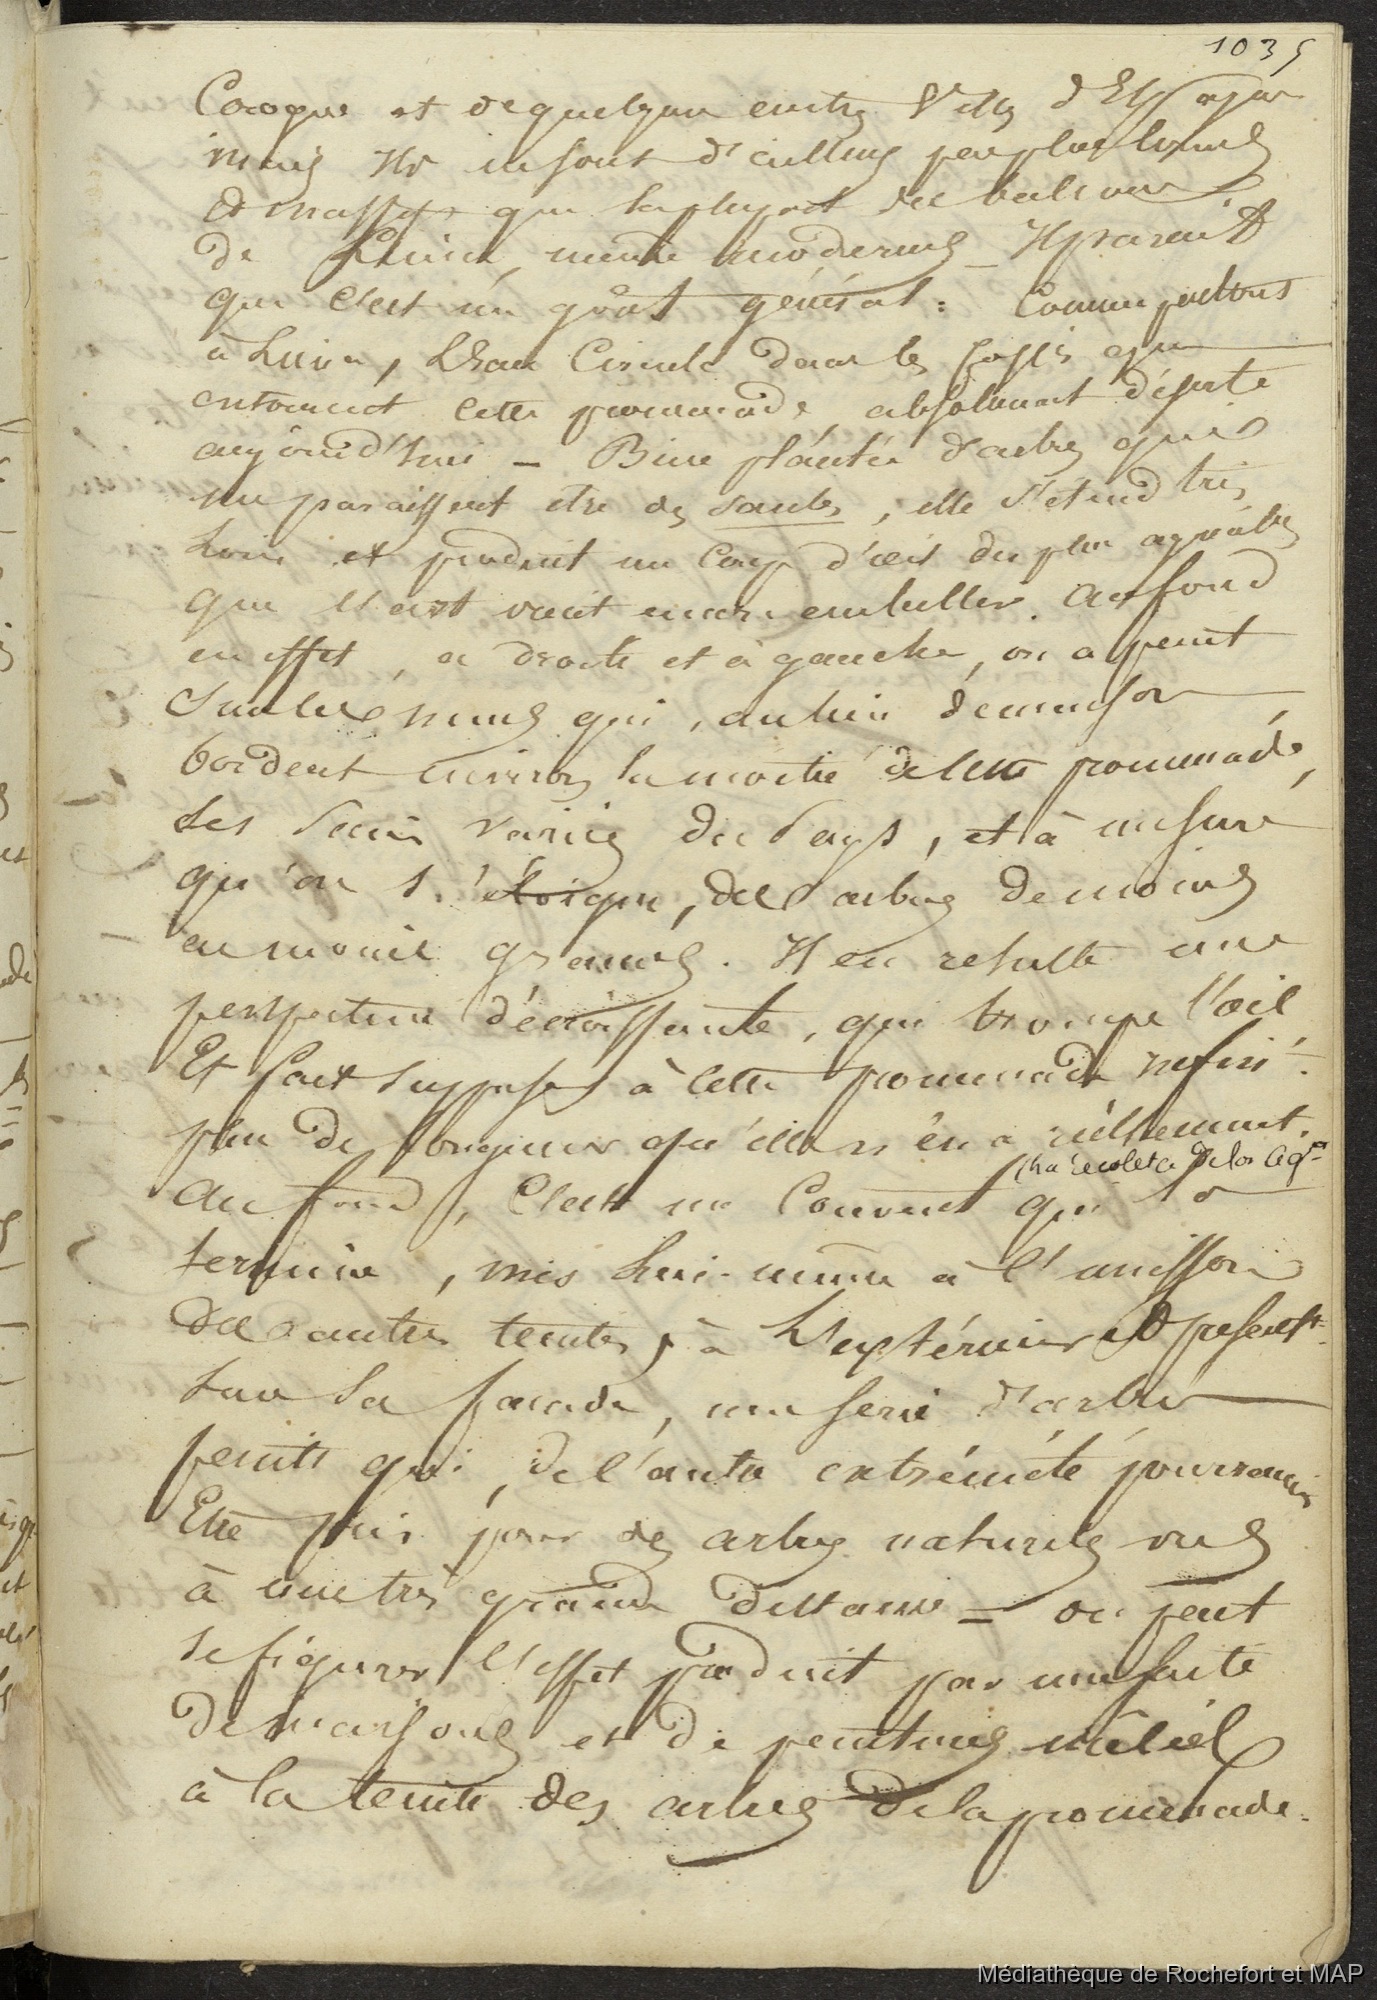 1035
et de quelques autres Villes d'Espagne
mais Ils en sont d'ailleurs pas plus lourds
et massifs que la plupart des balcons
de Lima, même modernes _ Il parait
que c'est un goût général : Comme partout
à Lima, L'eau Circule dans les fossés qui
entourent cette promenade, absolument déserte
aujourd'hui — Bien plantée d'arbres qui
me paraissent etre des saules, elle s'étend très
Loin et produit un Coup d'œil des plus agréables
que l'art vient encore embellir. Au fond
en effet, a droite et à gauche, on a peint
Sur les murs qui, au lieu de maison
bordent environ la moitié de cette promenade,
des variés du Pays, et à mesure
qu'on s'éloigne, des arbres de moins
en moins grands. Il en resulte une
perspective décroissante, qui trompe l'œil
Et fait supposer à cette promenade infini-
plus de longueur qu'elle n'en a réellement.
(La recoleta de los
Au fond, C'est un Couvent qui la
termine, mis Lui-même à l'unisson
des autres teintes, à L'extérieur et présent-
sur sa façade, une serie d'arbres
peints qui, de l'autre extrémité pourraient
Etre pris pour des arbres naturels vus
à une très grande distance = on peut
se figurer l'effet produit par une suite
de maisons et de peintures mêlées
à la teinte des arbres de la promenade.
Médiathèque de Rochefort et MAP